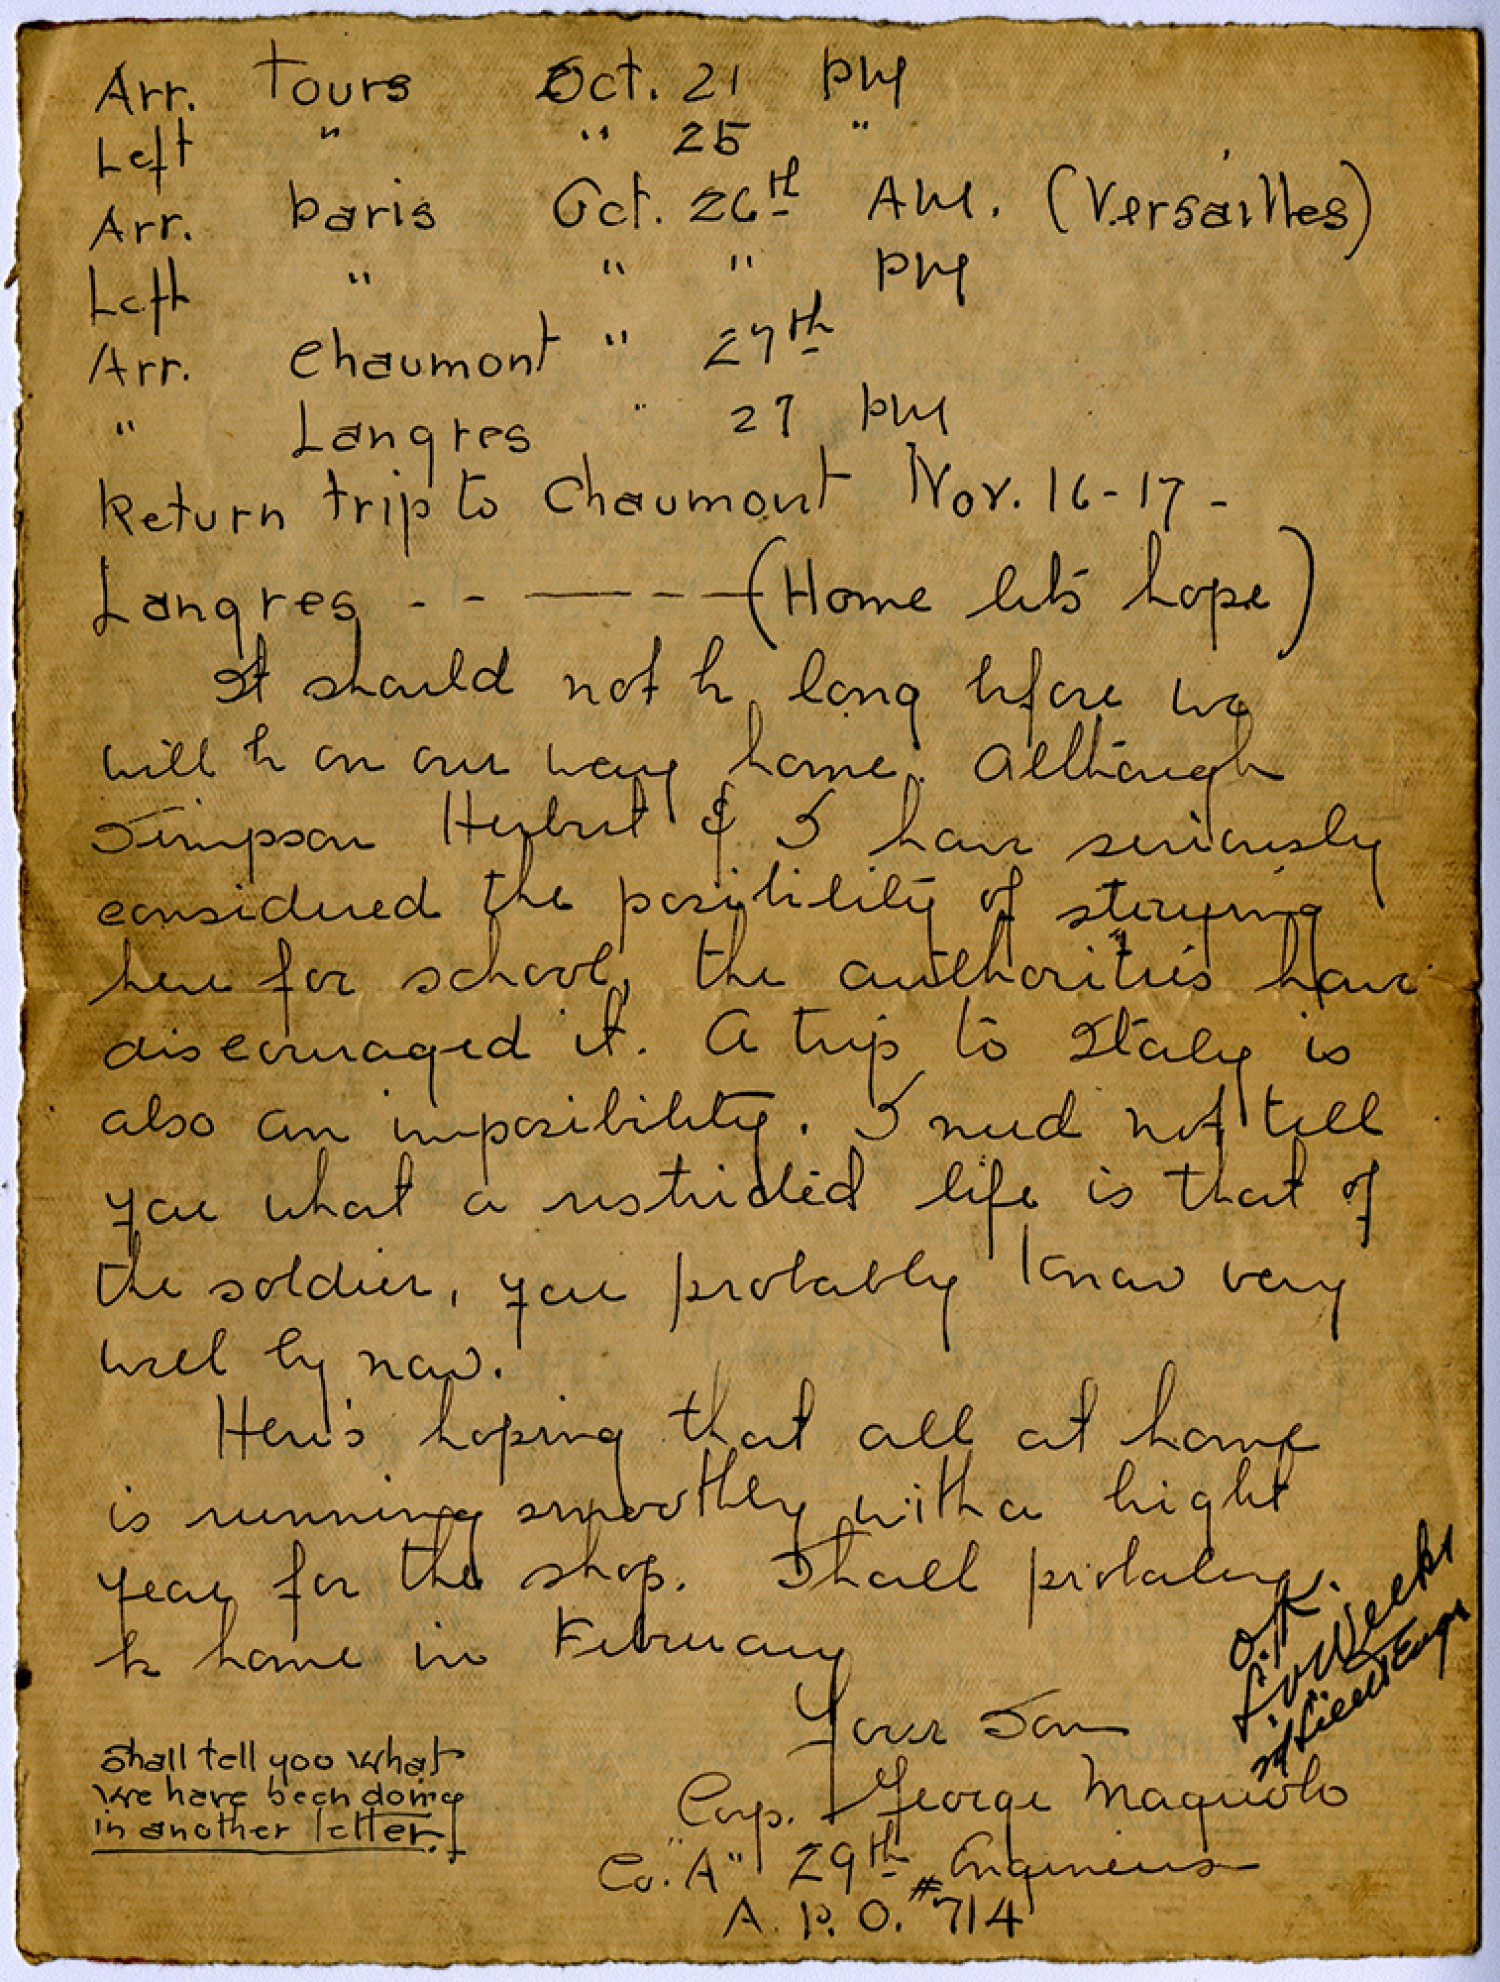 Arr. Tours Oct. 21 PM
Left " " 25 "
Arr. Paris Oct. 26th AM. (Versailles)
Left " " " PM
Arr. Chaumont " 27th
" Langres " 27 PM
Return trip to Chaumont Nov. 16-17-
Langres - - — - - — (Home let's hope)
It should not be long before we
will be on our way home. Although
Simpson Herbert & I have seriously
considered the posibility of staying
here for school, the authorities have
discouraged it. A trip to Italy is
also an imposibility. I need not tell
you what a restricted life is that of
the soldier, you probably know very
well by now.
Here's hoping that all at home
is running smoothly with a bright
year for the shop. I shall probably
be home in February
Your Son
Corp. George Magnolo
Co. "A" 29th Engineers
A. P. O. #714
Shall tell you what
we have been doing
in another letter!
O.K.
Weeks
Lieut Engrs